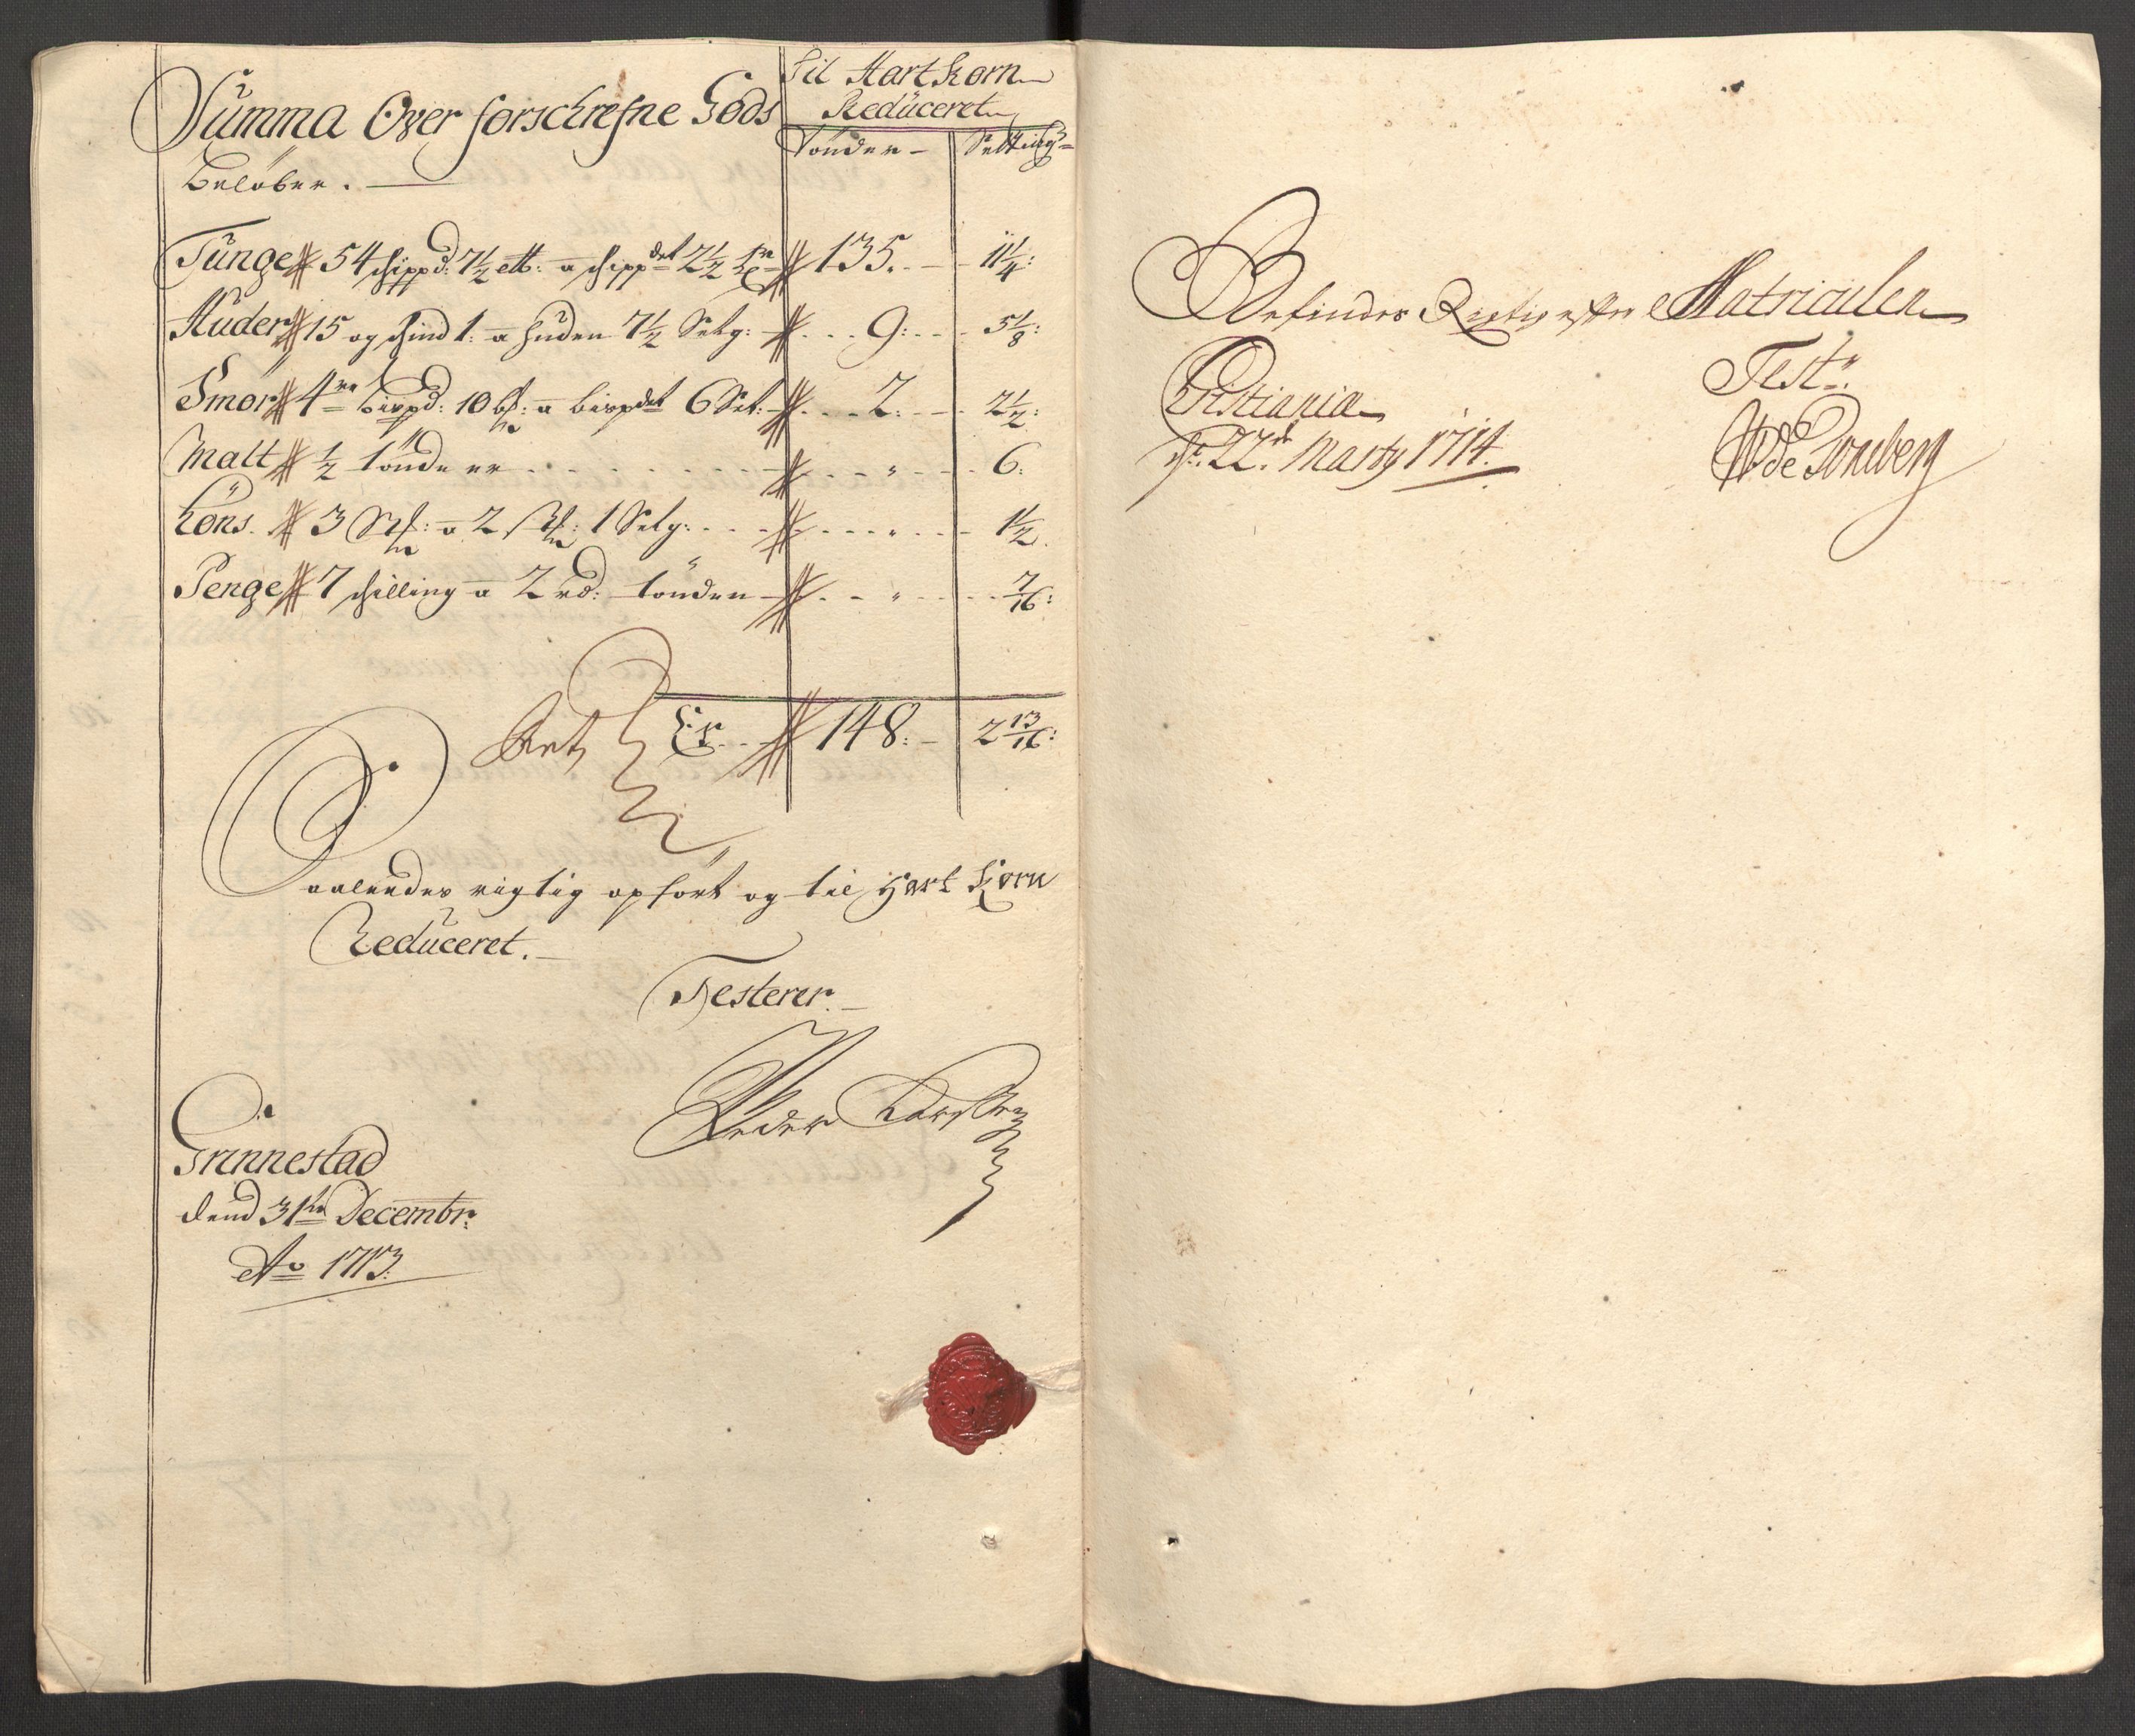 Til Hart Korn
Reduceret
Summa Over forschrefne Gods
Tønder Setting
beløber.
Tunge 54 schippd: 7½ ett: a schippdet 2½ tr 135. 11¼
Huder 15 og schind 1: a huden 7½ Setg: 9: 5⅛:
Smør 4re bispd: 10 bs: a bispdet 6 Set: 2: 2½:
Malt ½ tønde er 6:
3 a 2 1 Setg: 1½
Penge 7 schilling a 2 rd: tønden 7/16:
Ret Er 148: 2 13/16:
Saaledes rigtig opført og til Hart Korn
Reduceret.
Testerer
Peder
Grinnestad
dend 31te Decembr:
Ao 1713:
Befindes Rigtig efter Matriculen
Christiania Test:
d: 22d Marty 1714.